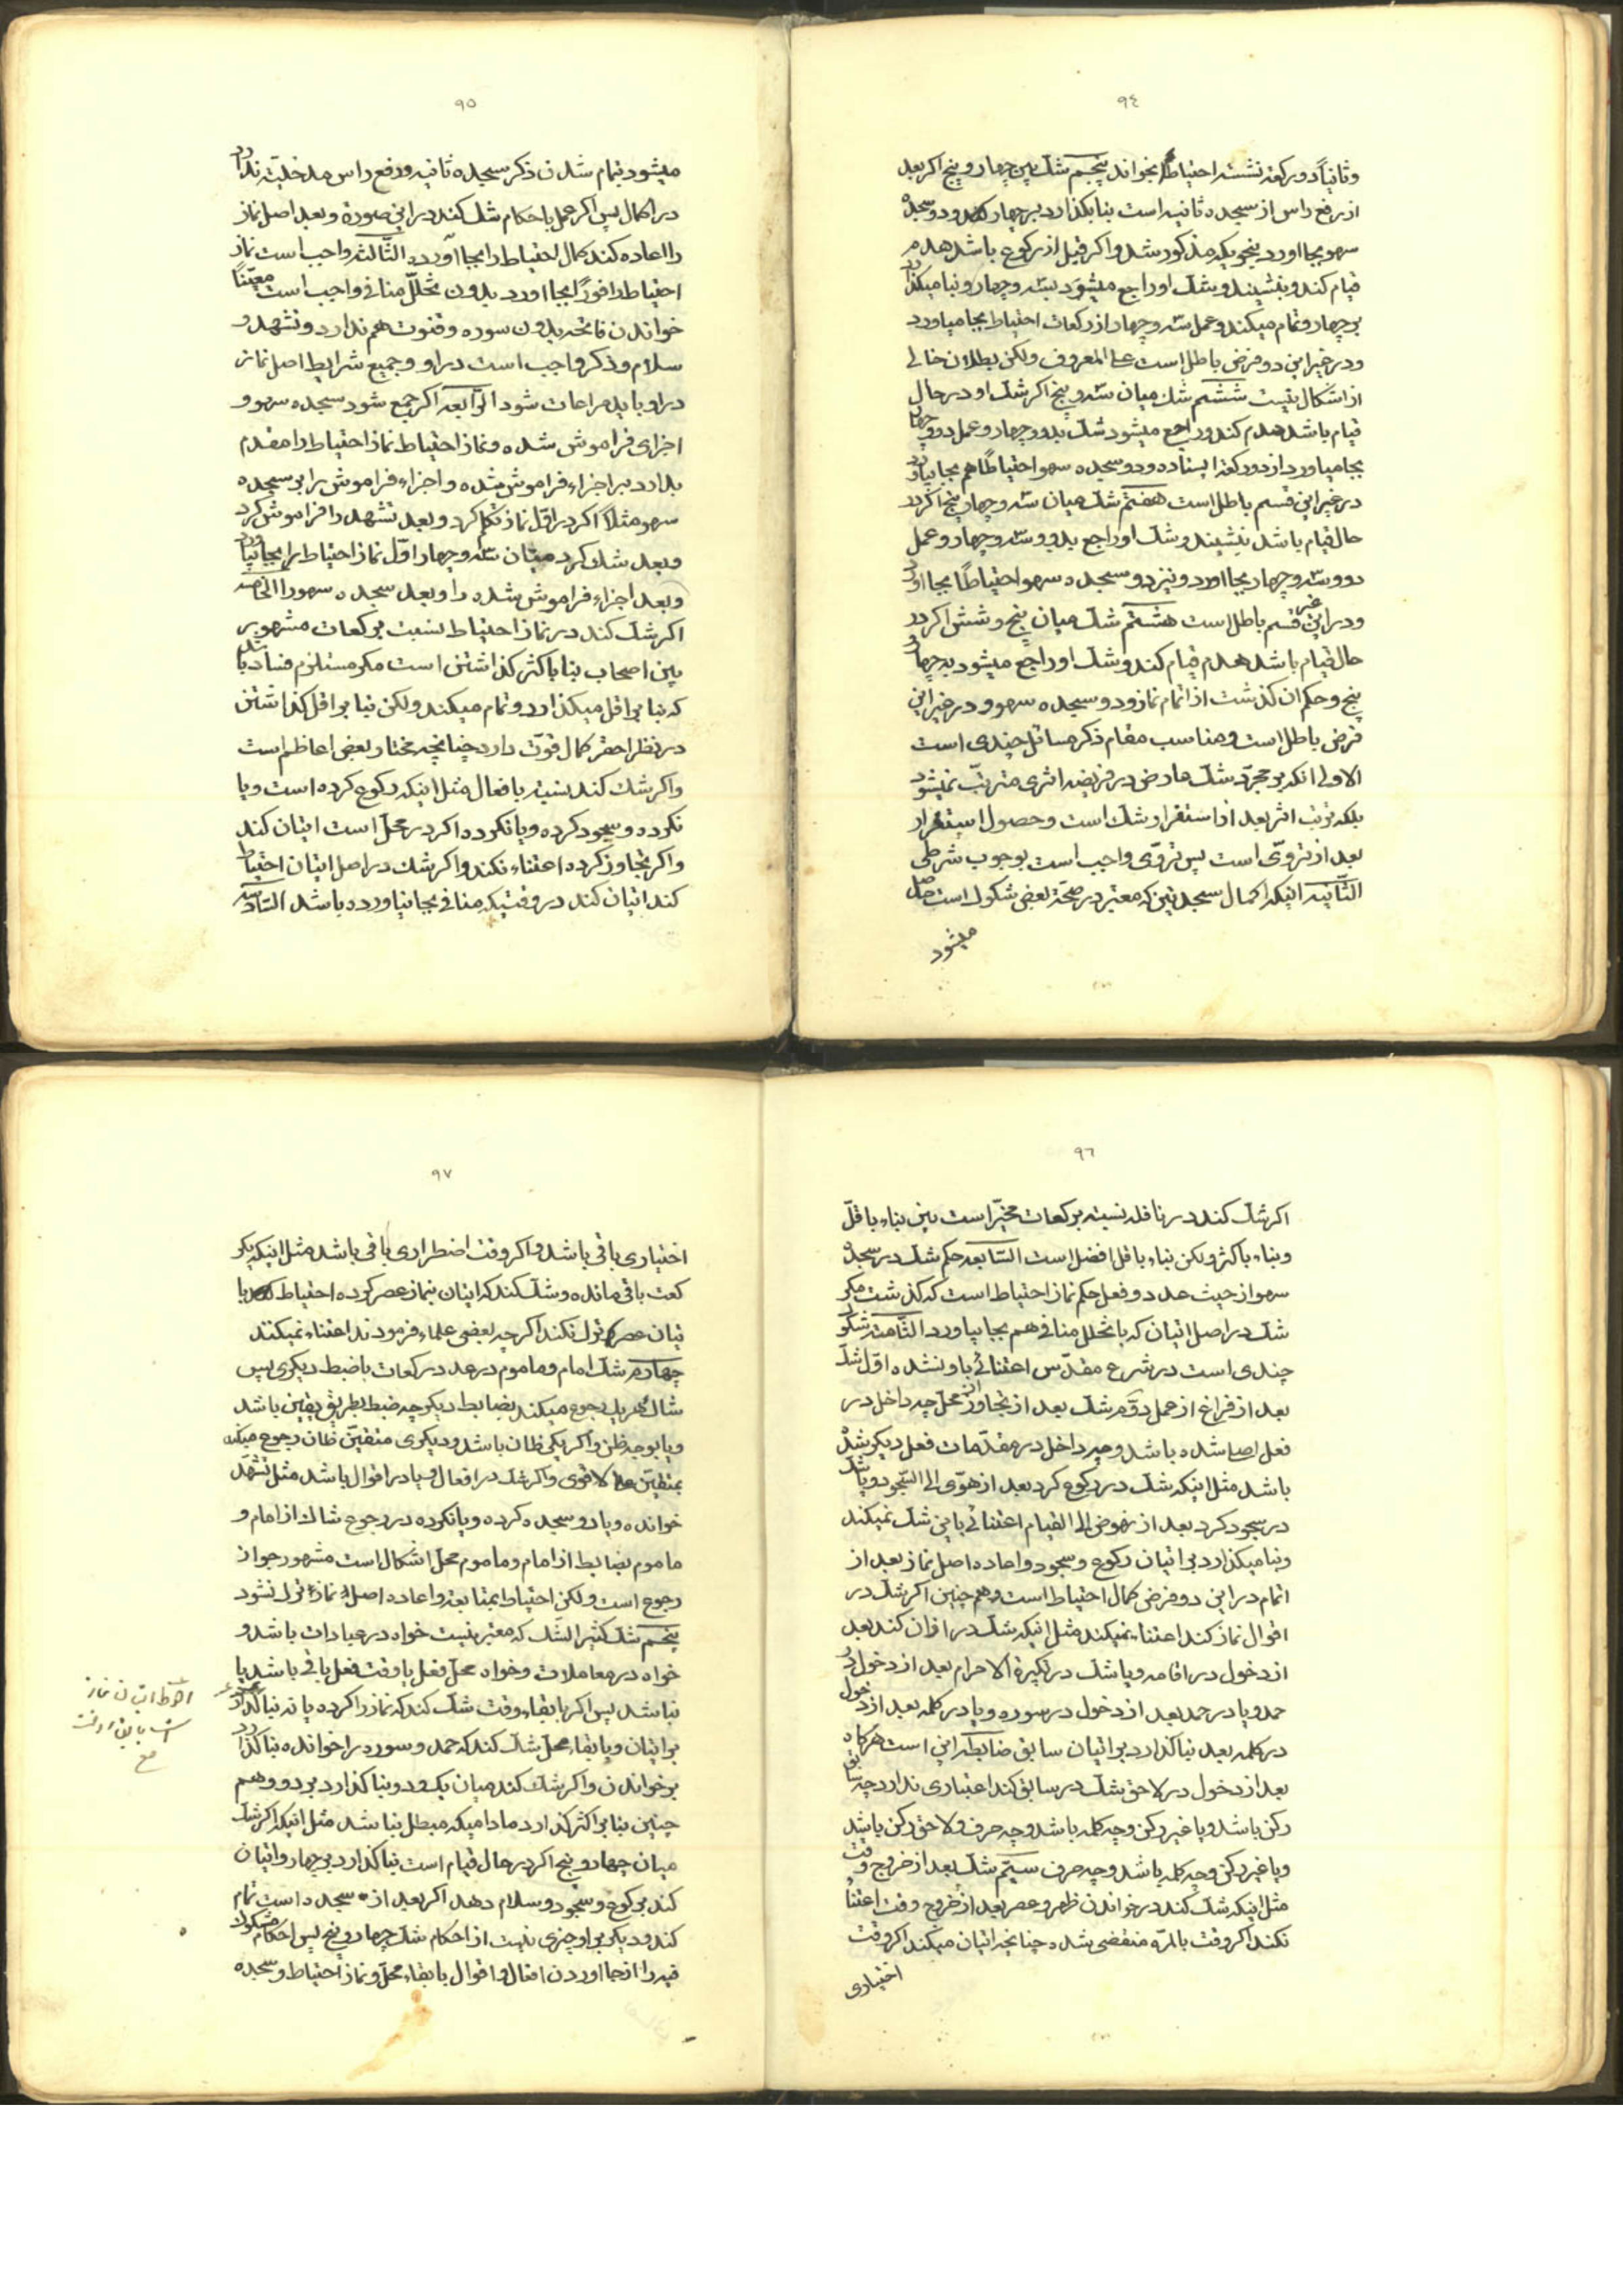 ٩٤
وثانیاً دورکعة نشسته احتیاطاً بخواند پنجم شك بین چهار و پنج اکر بعد
از رفع راس از سجده ثانیه است بنا بکذارد بر چهار و دو سجدۀ
سهو بجا اورد بنحویکه مذکور شد و اکر قبل از رکوع باشد هدم
قیام کند و بنشیند و شك او راجع میشود بسه و چهار و بنا میکذارد
بر چهار و تمام میکند و عمل سه و چهار از رکعات احتیاط بجا میاورد
و در غیر این دو فرض باطل است علی المعروف ولکن بطلان خالی
از اشکال نیست ششم شك میان سه و پنج اکر شك او در حال
قیام باشد هدم کند و راجع میشود شك بدو و چهار و عمل دو و چهار
بجا میاورد از دو رکعة ایستاده و دو سجده سهو احتیاطاً هم بجا بیاورد
در غیر این قسم باطل است هفتم شك میان سه و چهار و پنج اکر در
حال قیام باشد بنشیند و شك او راجع بدو و سه و چهار و عمل
دو و سه و چهار بجا اورد و نیز دو سجده سهو احتیاطاً بجا اورد
و در غیر این قسم باطل است هشتم شك میان پنج و شش اکر در
حال قیام باشد هدم قیام کند و شك او راجع میشود به چهار و
پنج و حکم ان کذشت از اتمام نماز و دو سجده سهو و در غیر این
فرض باطل است و مناسب مقام ذکر مسائل چندی است
الاولی انکه بر مجرّد شك عارض در فریضه اثری مترتّب نمیشود
بلکه ترتب اثر بعد از استقرار شك است و حصول استقرار
بعد از تروّی است پس تروّی واجب است بوجوب شرطی
الثّانیه اینکه اکمال سجدتین که معتبر در صحّة بعض شکوك است حاصل
میشود
٩٥
میشود بتمام شدن ذکر سجده ثانیه و رفع راس مدخلیّة ندارد
در اکمال پس اکر عمل باحکام شك کند در این صورة و بعد اصل نماز
را اعاده کند کمال احتیاط را بجا آورده الثّالثه واجب است نماز
احتیاط را فوراً بجا اورد بدون تخلّل منافی و واجب است معیّناً
خواندن فاتحه بدون سوره و قنوت هم ندارد و تشهد و
سلام و ذکر واجب است در او و جمیع شرایط اصل نماز
در او باید مراعات شود الرّابعه اکر جمع شود سجده سهو و
اجزای فراموش شده و نماز احتیاط نماز احتیاط را مقدم
بدارد بر اجزاء فراموش شده و اجزاء فراموش را بر سجده
سهو مثلاً اکر در اوّل نماز تکلّم کرد و بعد تشهد را فراموش کرد
و بعد شك کرد میان سه و چهار اوّل نماز احتیاط را بجا بیاورد
و بعد اجزاء فراموش شده را و بعد سجده سهو را الخامسه
اکر شك کند در نماز احتیاط نسبت برکعات مشهور
بین اصحاب بنا باکثر کذاشتن است مکر مستلزم فساد باشد
که بنا بر اقل میکذارد و تمام میکند ولکن بنا بر اقل کذاشتن
در نظر احقر کمال قوّت دارد چنانچه مختار بعض اعاظم است
و اکر شك کند نسبة بافعال مثل اینکه رکوع کرده است و یا
نکرده و سجود کرده و یا نکرده اکر در محل است اتیان کند
و اکر تجاوز کرده اعتناء نکند و اکر شك در اصل اتیان احتیاط
کند اتیان کند در وقتیکه منافی بجا نیاورده باشد السّادسه
٩٦
اکر شك کند در نافله نسبة برکعات مخیّر است بین بناء باقلّ
و بناء باکثر ولکن بناء باقل افضل است السّابعه حکم شك در سجدۀ
سهو از حیث عدد و فعل حکم نماز احتیاط است که کذشت مکر
شك در اصل اتیان که با تخلل منافی هم بجا بیاورد الثّامنه شکوك
چندی است در شرع مقدّس اعتنائی باو نشده اوّل شك
بعد از فراغ از عمل دوّم شك بعد از تجاوز از محل چه داخل در
فعل اصلی شده باشد و چه داخل در مقدّمات فعل دیکر شده
باشد مثل اینکه شك در رکوع کرد بعد از هوّی الی السّجود و یا شك
در سجود کرد بعد از نهوض الی القیام اعتنائی باین شك نمیکند
و بنا میکذارد بر اتیان رکوع و سجود و اعاده اصل نماز بعد از
اتمام در این دو فرض کمال احتیاط است و هم چنین اکر شك در
اقوال نماز کند اعتناء نمیکند مثل اینکه شك در اذان کند بعد
از دخول در اقامه و یا شك در تکبیرة الاحرام بعد از دخول در
حمد و یا در حمد بعد از دخول در سوره و یا در کلمه بعد از دخول
در کلمه بعد بنا کذارد بر اتیان سابق ضابطه این است هرکاه
بعد از دخول در لاحق شك در سابق کند اعتباری ندارد چه سابق
رکن باشد و یا غیر رکن و چه کلمه باشد و چه حرف و لاحق رکن باشد
و یا غیر رکن و چه کلمه باشد و چه حرف سیّم شك بعد از خروج وقت
مثل اینکه شك کند در خواندن ظهر و عصر بعد از خروج وقت اعتناء
نکند اکر وقت بالمرّه منقضی شده چنانچه اتیان میکند اکر وقت
اختیاری
٩٧
اختیاری باقی باشد و اکر وقت اضطراری باقی باشد مثل اینکه یکر
کعت باقی مانده و شك کند که اتیان بنماز عصر کرده احتیاط با
تیان عصر ترك نکند اکر چه بعضی علماء فرمودند اعتناء نمیکند
چهارم شك امام و ماموم در عدد رکعات با ضبط دیکری پس
شاك هریك رجوع میکند بضابط دیکر چه ضبط بطریق یقین باشد
و یا بوجه ظن و اکر یکی ظان باشد و دیکری متیقّن ظان رجوع میکند
بمتیقّن علی الاقوی و اکر شك در افعال و یا در اقوال باشد مثل تشهّد
خوانده و یا دو سجده کرده و یا نکرده در رجوع شاك از امام و
ماموم بضابط از امام و ماموم محل اشکال است مشهور جواز
رجوع است ولکن احتیاط بمتابعة و اعاده اصل نماز ترك نشود
پنجم شك کثیر الشّك که معتبر نیست خواه در عبادات باشد و
خواه در معاملات و خواه محل فعل یا وقت فعل باقی باشد یا
نباشد پس اکر با بقاء وقت شك کند که نماز را کرده یا نه بنا کذارد
بر اتیان و یا بقاء محل شك کند که حمد و سوره را خوانده بنا کذارد
بر خواندن و اکر شك کند میان یك و دو بنا کذارد بر دو و هم
چنین بنا بر اکثر کذارد مادامیکه مبطل نباشد مثل اینکه اکر شك
میان چهار و پنج اکر در حال قیام است بنا کذارد بر چهار و اتیان
کند برکوع و سجود و سلام دهد اکر بعد از سجده است تمام
کند و دیکر بر او چیزی نیست از احکام شك چهار و پنج پس احکام مشکوك
فیه را از بجا اوردن افعال و اقوال با بقاء محل و نماز احتیاط و سجده